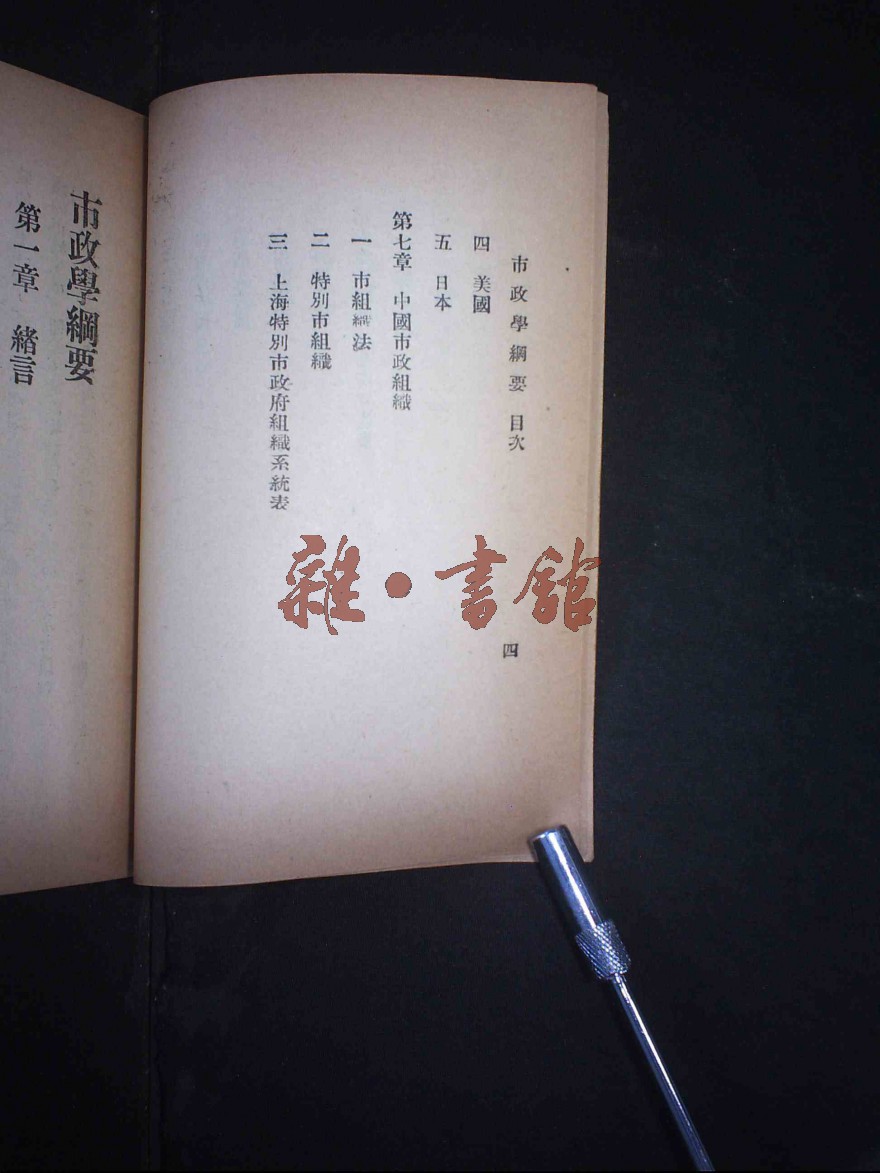 市政學綱要　目次
四　美國
五　日本
第七章　中國市政組織
一　市組織法
二　特別市組織
三　上海特別市政府組織系統表
四
市政學綱要
第一章　緒言
雜・書館